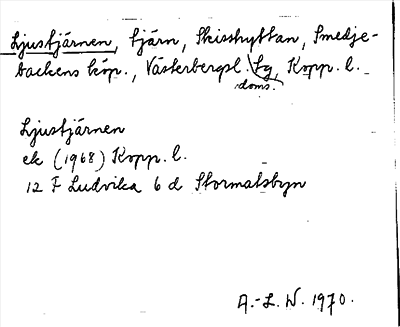 Ljustjärnen, tjärn, Skisshyttan, Smedje-
backens köp., Västerbergsl. doms. tg, Kopp. l.
Ljustjärnen
ek (1968) Kopp. l.
12 F Ludvika 6 d Stormatsbyn
A.-L. W. 1970.